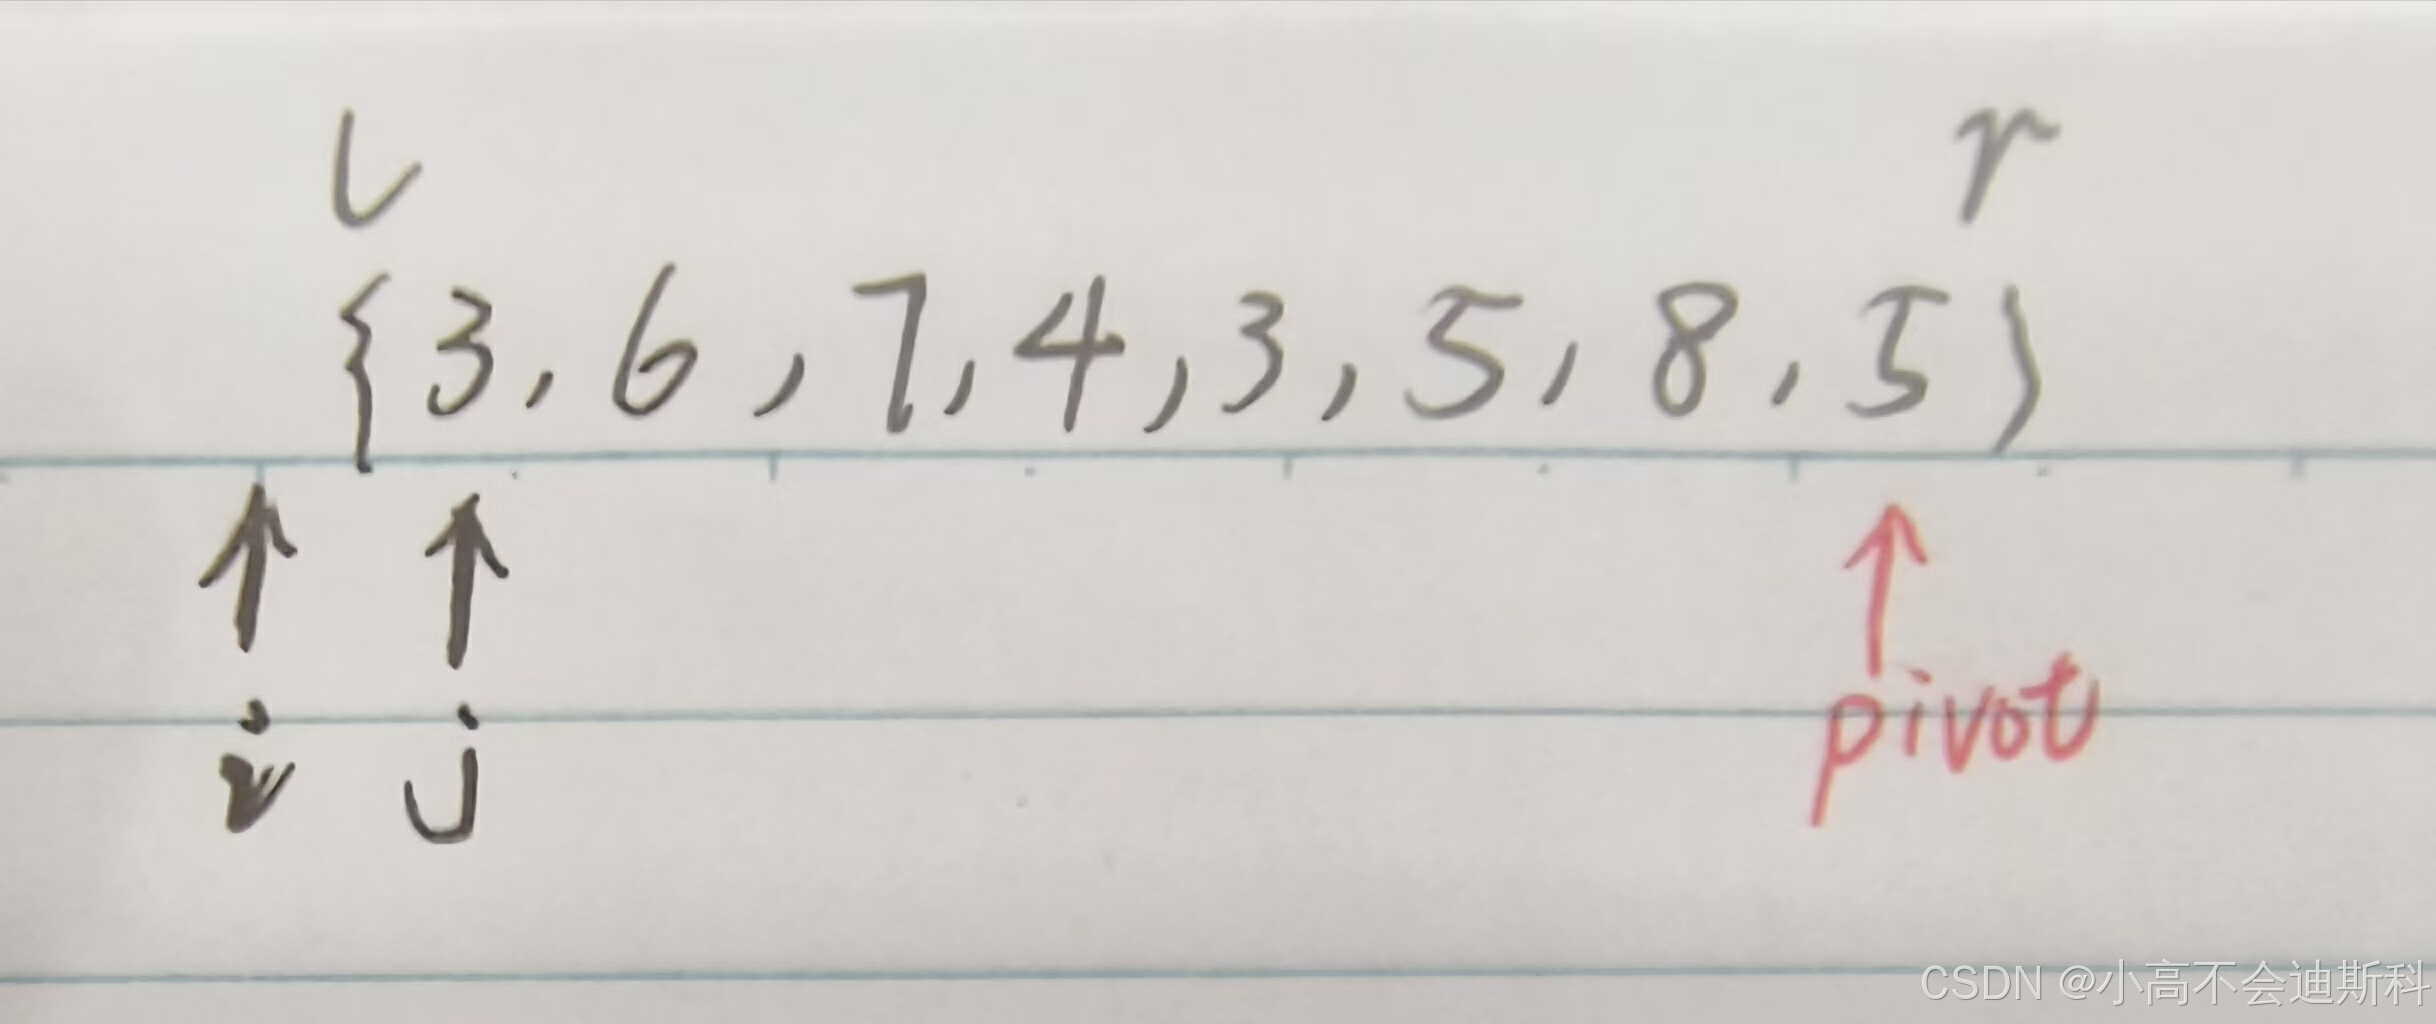 l r
{3, 6, 7, 4, 3, 5, 8, 5}
i j
pivot
CSDN @小高不会迪斯科